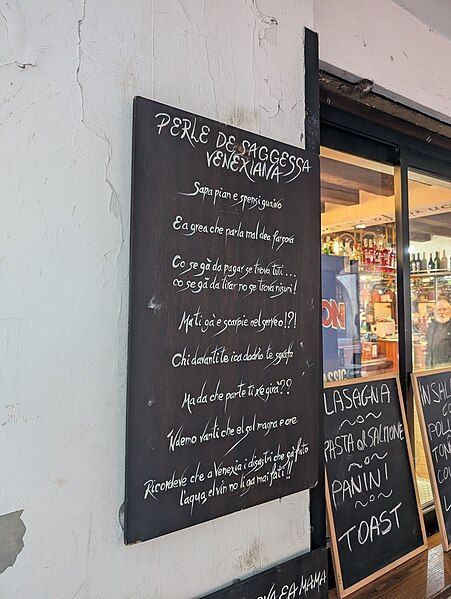 PERLE DE SAGGESSA
VENEXIANA
Sapa pian e spensi guaivo
Ea grea che parla mal dea farsora
Co se gà da pagar se trova tuti...
co se gà da tirar no se trova nisuni!
Ma ti gà e scarpie nel serveo!?!
Chi davanti te ica dodrio te sgnafa
Ma da che parte ti xe girà??
'Ndemo vanti che el sol magna e ore
Ricordeve che a Venexia i disastri che gà fato
l'aqua, el vin no li ga mai fati!!
LASAGNA
PASTA al SALMONE
PANINI
TOAST
IN SAL
CO
POLL
TONN
CO
EA MAMA